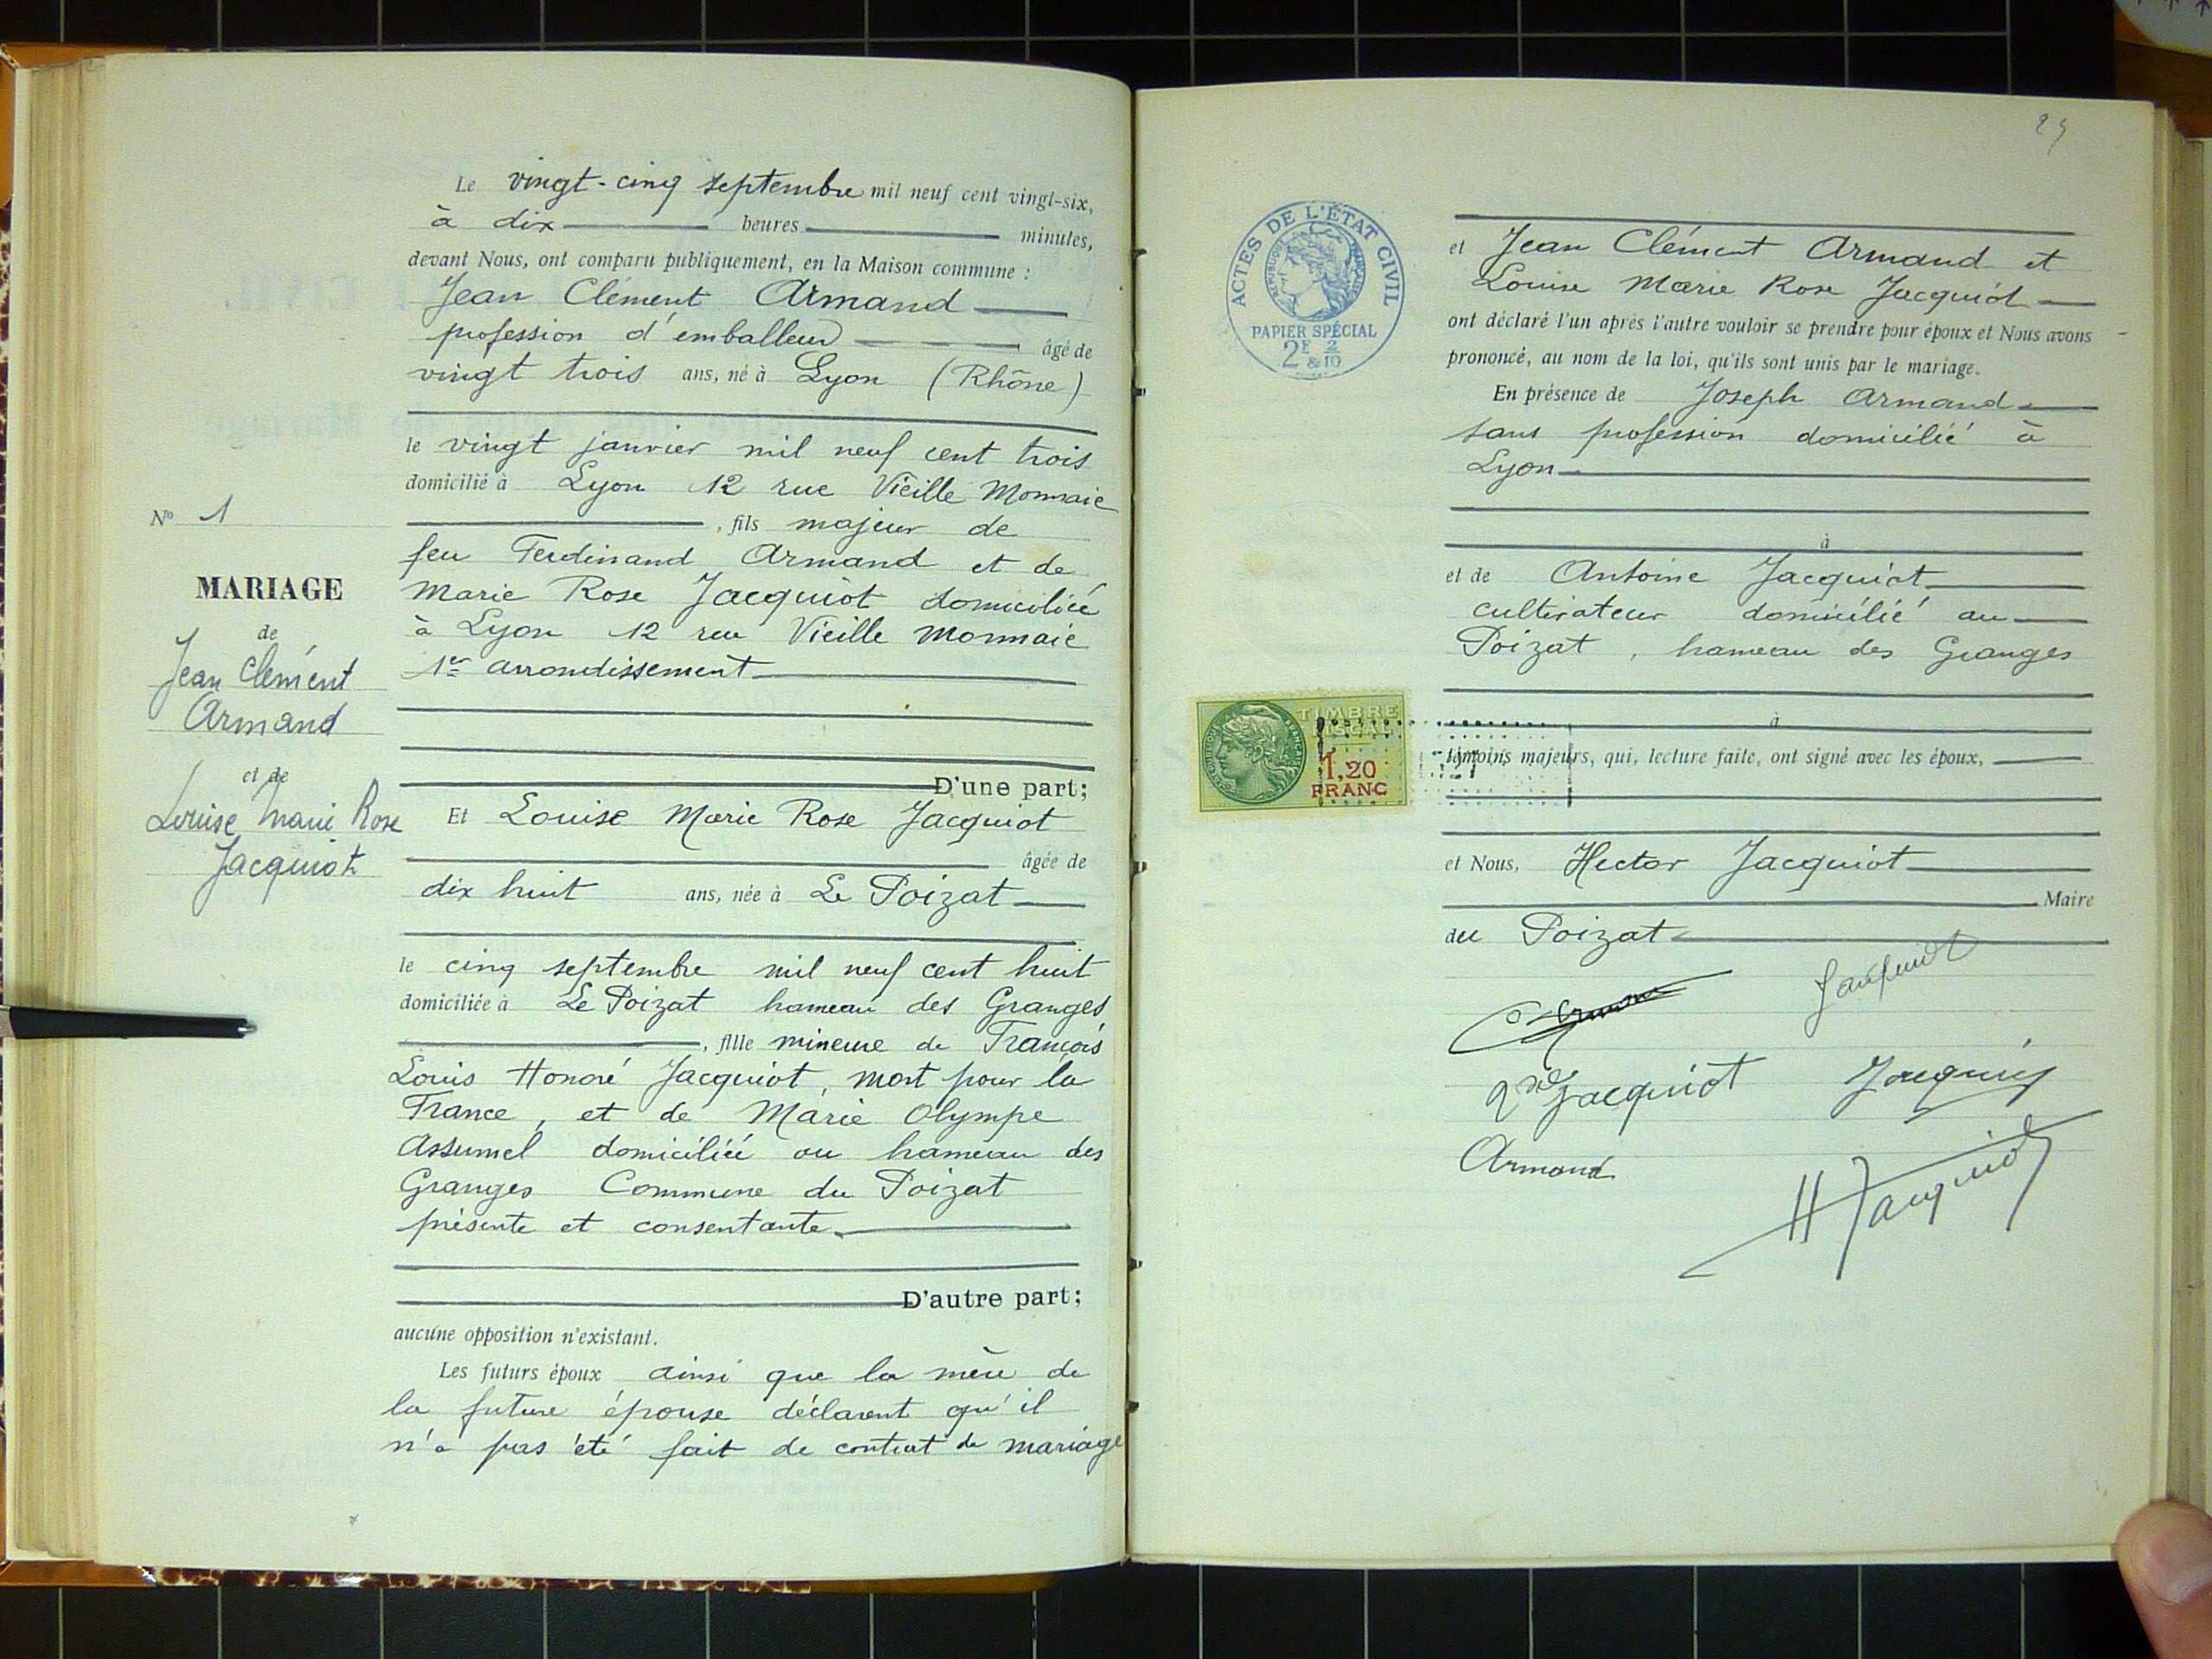 Le vingt-cinq septembre mil neuf cent vingt-six,
à dix heures minutes,
devant Nous, ont comparu publiquement, en la Maison commune :
Jean Clément Armand
profession d'emballeur âgé de
vingt trois ans, né à Lyon (Rhône)
le vingt janvier mil neuf cent trois
domicilié à Lyon 12 rue Vieille Monnaie
, fils majeur de
feu Ferdinand Armand et de
Marie Rose Jacquiot domiciliée
à Lyon 12 rue Vieille Monnaie
1er arrondissement
D'une part;
Et Louise Marie Rose Jacquiot
âgée de
dix huit ans, née à Le Poizat
le cinq septembre mil neuf cent huit
domiciliée à Le Poizat hameau des Granges
, fille mineure de François
Louis Honoré Jacquiot, mort pour la
France, et de Marie Olympe
Assumel domiciliée au hameau des
Granges Commune du Poizat
présente et consentante.
D'autre part;
aucune opposition n'existant.
Les futurs époux ainsi que la mère de
la future épouse déclarent qu'il
n'a pas été fait de contrat de mariage
No 1
MARIAGE
de
Jean Clément
Armand
et de
Louise Marie Rose
Jacquiot
ACTES DE L'ÉTAT CIVIL
PAPIER SPÉCIAL
2F & 2/10
TIMBRE
FISCAL
1,20
FRANC
et Jean Clément Armand et
Louise Marie Rose Jacquiot
ont déclaré l'un après l'autre vouloir se prendre pour époux et Nous avons
prononcé, au nom de la loi, qu'ils sont unis par le mariage.
En présence de Joseph Armand
sans profession domicilié à
Lyon
à
et de Antoine Jacquiot
cultivateur domicilié au
Poizat, hameau des Granges
à
témoins majeurs, qui, lecture faite, ont signé avec les époux,
et Nous, Hector Jacquiot
Maire
du Poizat
Jacquiot
Jacquiot
Armand
H Jacquiot